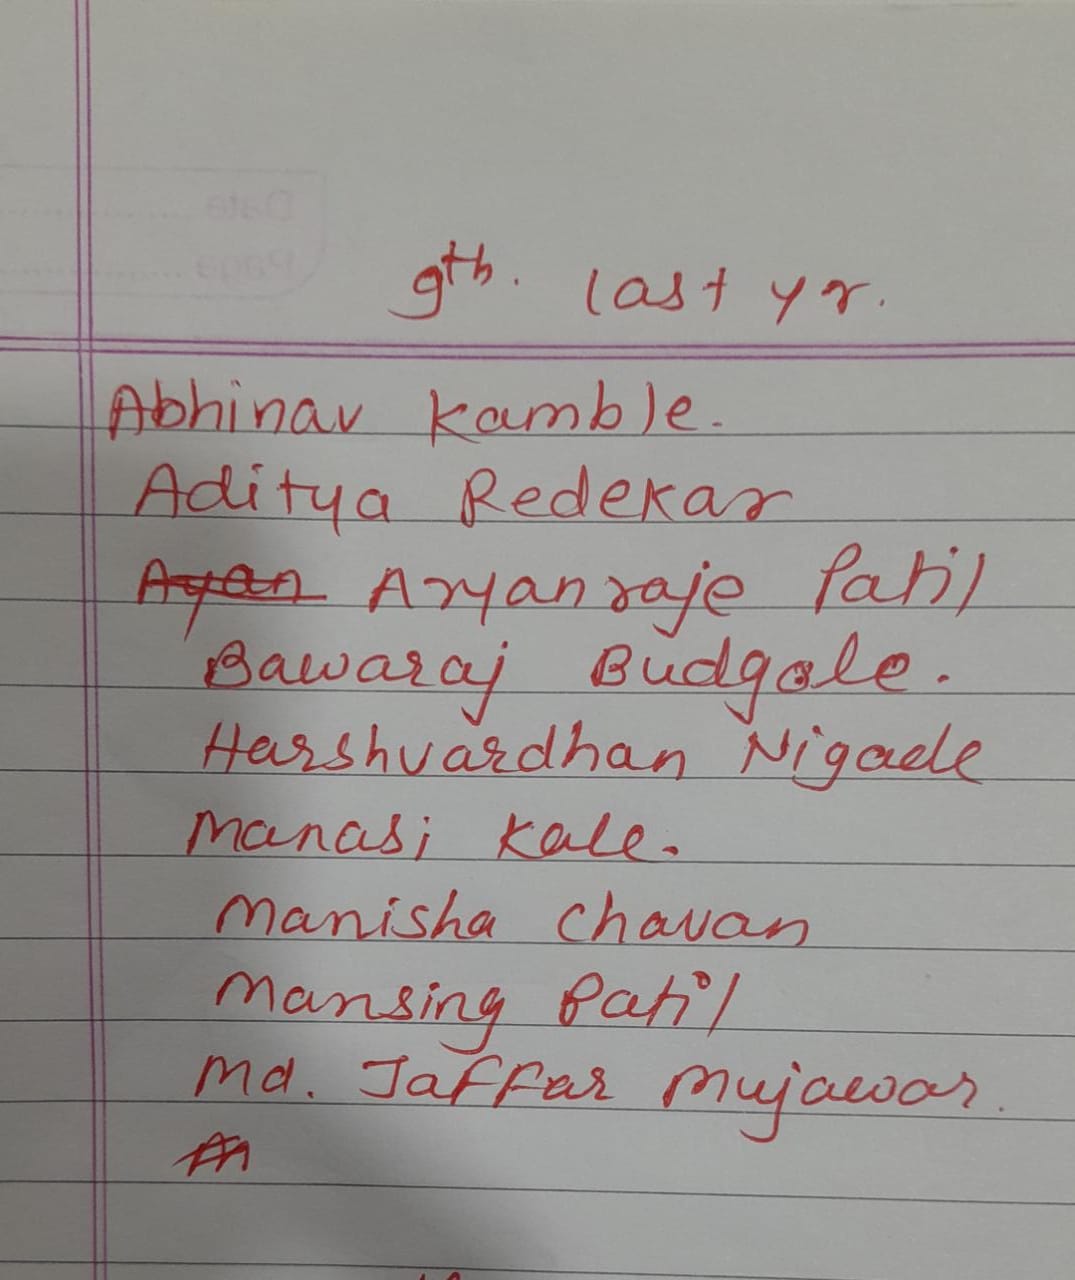 9th. last yr.
Abhinav Kamble.
Aditya Redekar
Ayan Aryanraje Patil
Bawaraj Budgale.
Harshvardhan Nigade
Manasi Kale.
Manisha Chavan
Mansing Patil
Md. Jaffar Mujawar.